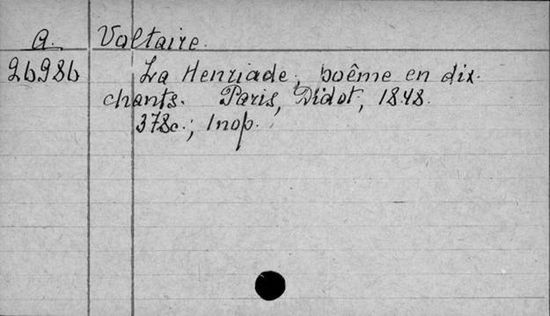 A. Voltaire.
26986 La Henriade; poême en dix
chants. Paris, Didot, 1848.
378c.; 1nop.